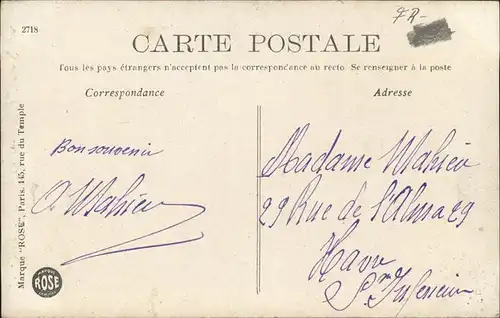 2718
FR-
CARTE POSTALE
Tous les pays étrangers n'acceptent pas la correspondance au recto. Se renseigner à la poste
Correspondance
Adresse
Bon souvenir
A Mahieu
Madame Mahieu
29 Rue de l'Alma 29
Havre
Sne Inferieure
Marque "ROSE", Paris. 145, rue du Temple
MARQUE
ROSE